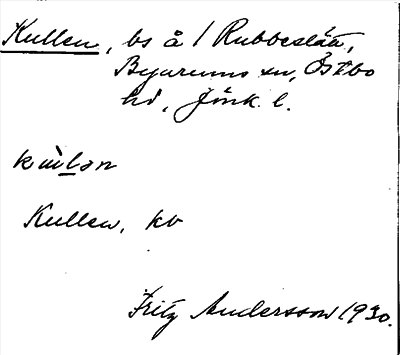 Kullen, bs å 1 Rubbeslätt,
Byarums sn, Östbo
hd, Jönk. l.
Kullen, kb
Fritz Andersson 1930.